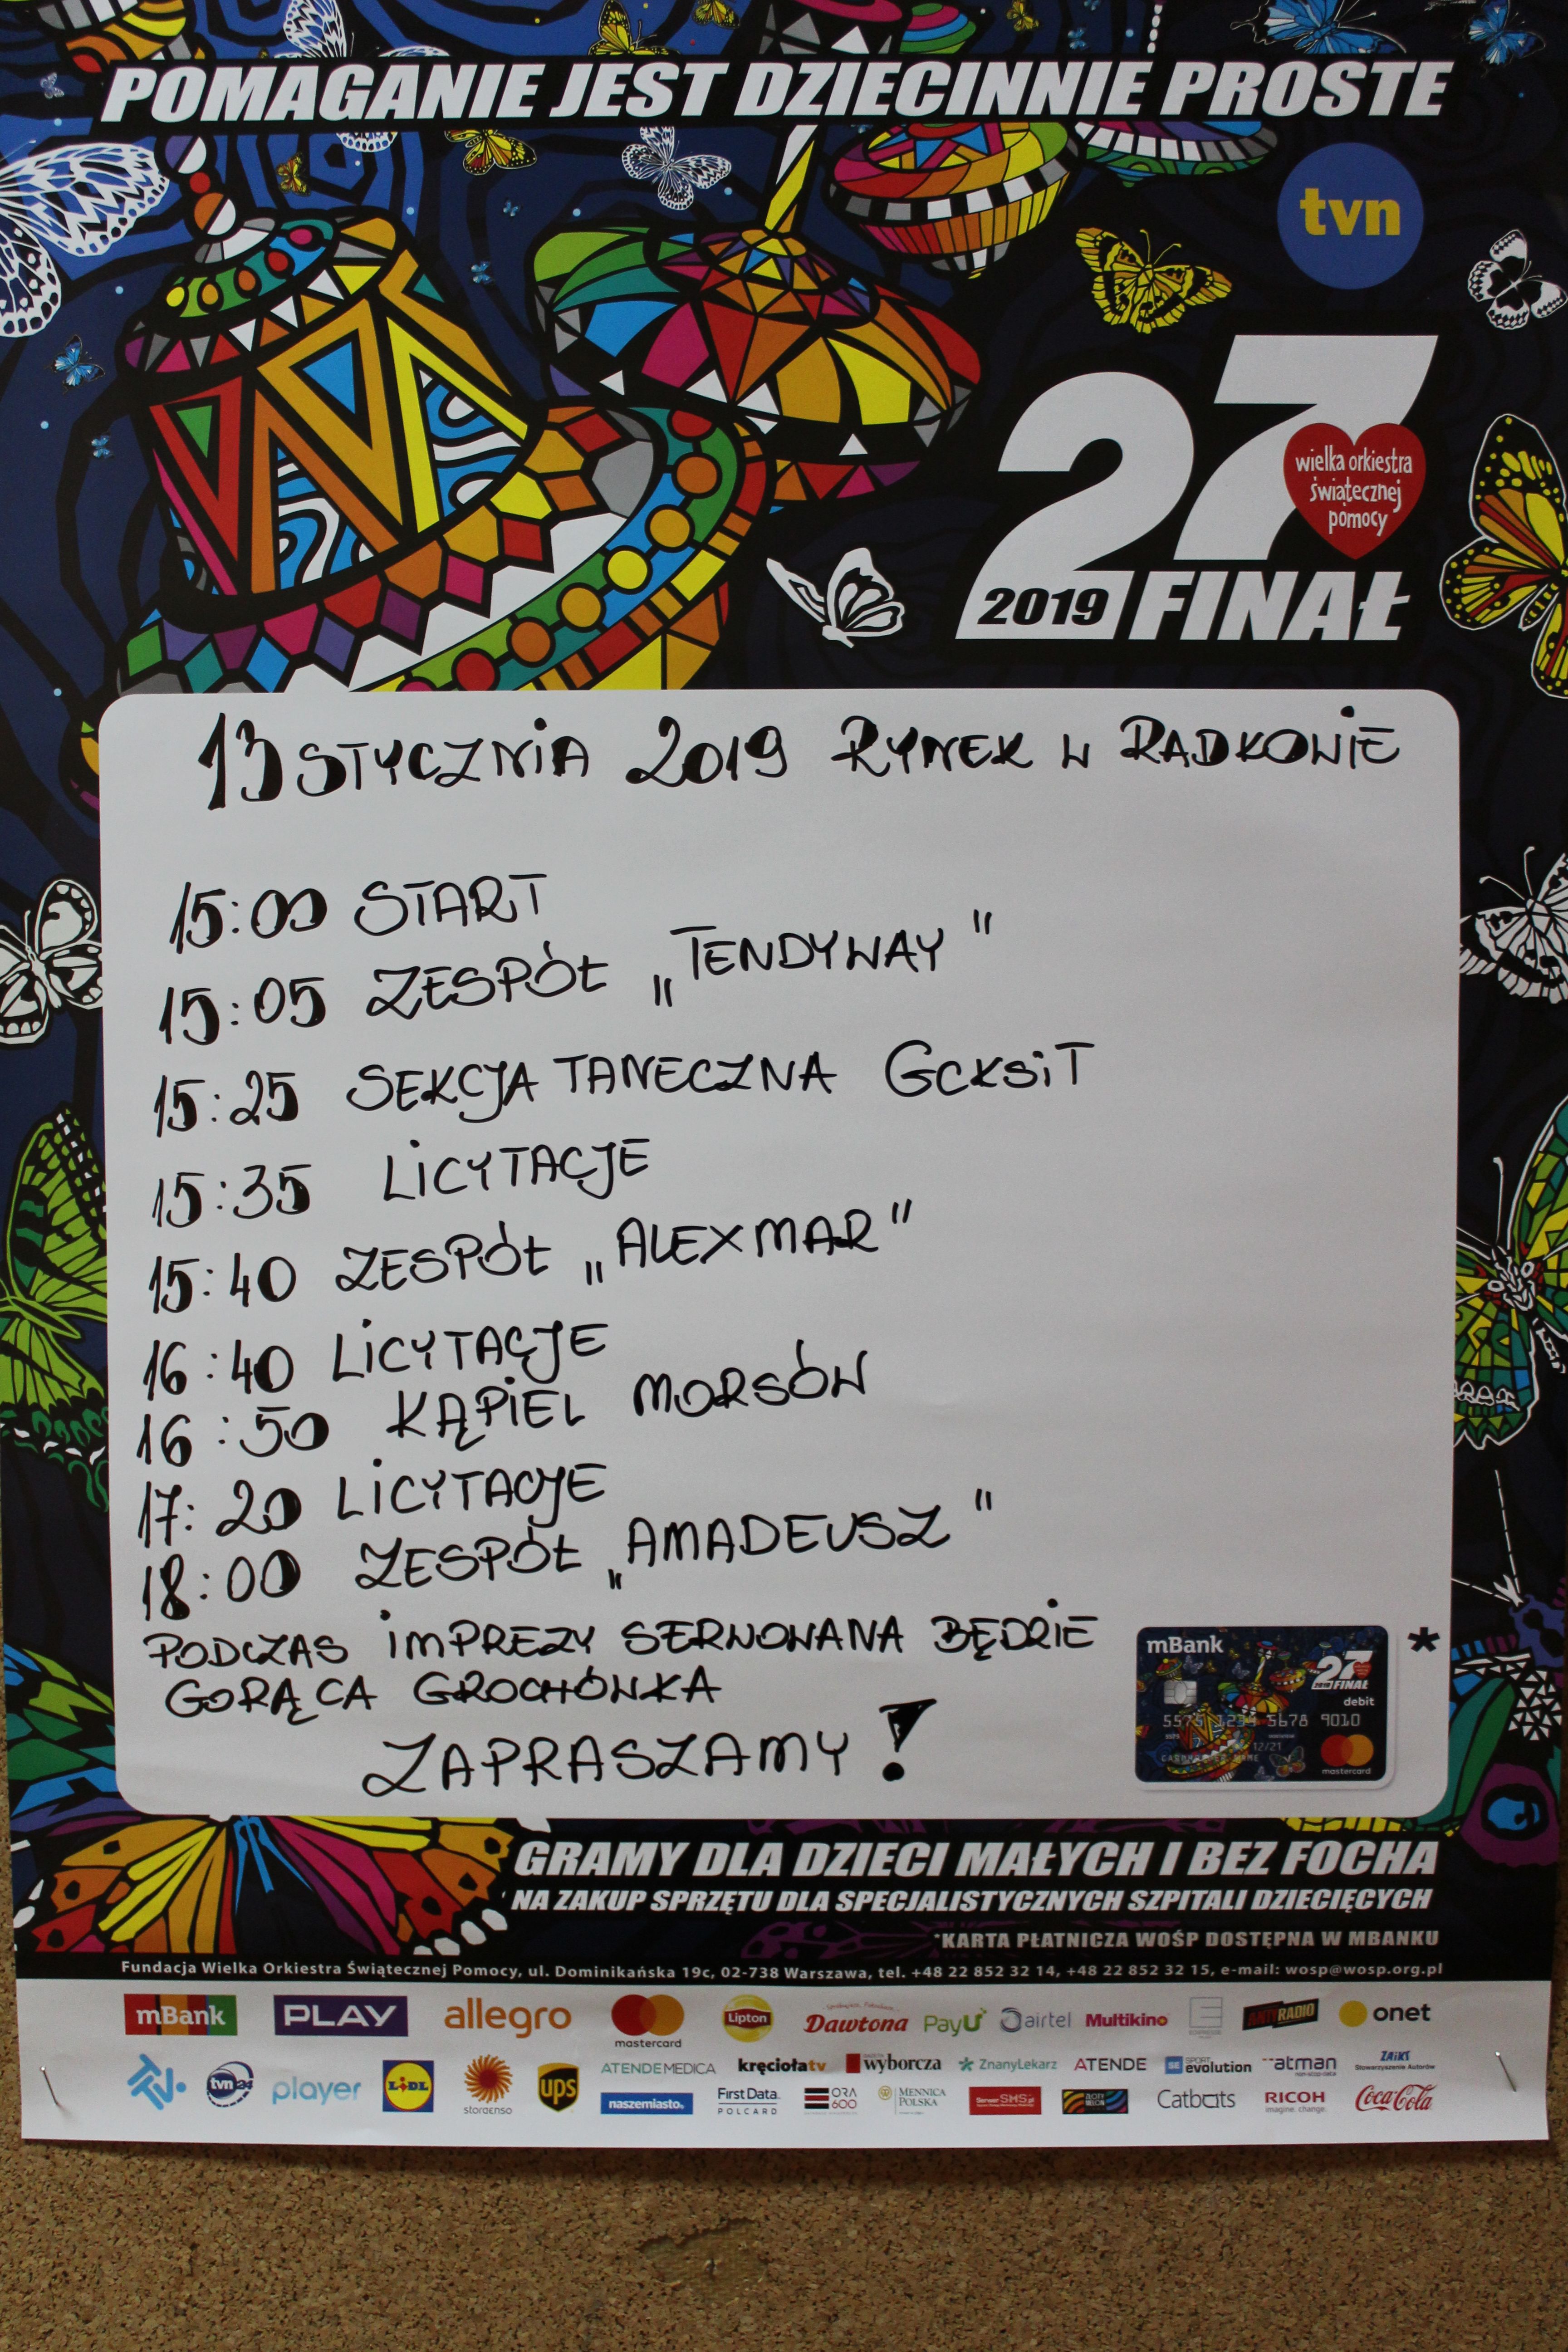 POMAGANIE JEST DZIECINNIE PROSTE
tvn
27
wielka orkiestra
świątecznej
pomocy
2019 FINAŁ
13 STYCZNIA 2019 RYNEK W RADKOWIE
15:00 START
15:05 ZESPÓŁ „TENDYWAY"
15:25 SEKCJA TANECZNA GCKSiT
15:35 LICYTACJE
15:40 ZESPÓŁ „ALEXMAR"
16:40 LICYTACJE
16:50 KĄPIEL MORSÓW
17:20 LICYTACJE
18:00 ZESPÓŁ „AMADEUSZ"
PODCZAS IMPREZY SERWOWANA BĘDZIE
GORĄCA GROCHÓWKA
ZAPRASZAMY!
mBank
27
2019 FINAŁ
debit
5575 1234 5678 9010
12/21
mastercard
*
GRAMY DLA DZIECI MAŁYCH I BEZ FOCHA
NA ZAKUP SPRZĘTU DLA SPECJALISTYCZNYCH SZPITALI DZIECIĘCYCH
*KARTA PŁATNICZA WOŚP DOSTĘPNA W MBANKU
Fundacja Wielka Orkiestra Świątecznej Pomocy, ul. Dominikańska 19c, 02-738 Warszawa, tel. +48 22 852 32 14, +48 22 852 32 15, e-mail: wosp@wosp.org.pl
mBank PLAY allegro mastercard Lipton Dawtona PayU airtel Multikino ANTYRADIO onet
tvn24 player LIDL storaenso ups ATENDEMEDICA kręciołatv wyborcza ZnanyLekarz ATENDE SPORT evolution atman ZAiKS Stowarzyszenie Autorów
naszemiasto First Data POLCARD ORA 600 MENNICA POLSKA SerwerSMS.pl Catbats RICOH imagine. change. Coca-Cola